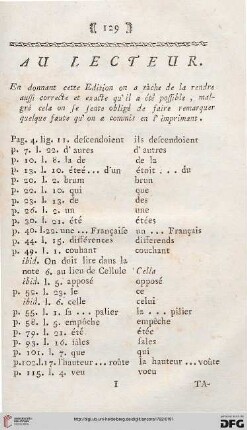 ( 129 )
AU LECTEUR.
En donnant cette Edition on a tâche de la rendre
aussi correcte et exacte qu'il a été possible, mal-
gré cela on se sent obligé de faire remarquer
quelque faute qu'on a commis en l'imprimant.
Pag. 4. lig. 11. descendoient ils descendoient
p. 7. l. 22. d'aures d'autres
p. 10. l. 8. la de de la
p. 13. l. 10. étéé... d'un étoit... du
p. 20. l. 2. brum brun
p. 22. l. 10. qui que
p. 23. l. 13. de des
p. 26. l. 2. un une
p. 30. l. 21. été étées
p. 40. l. 22. une... Française un... Français
p. 44. l. 15. différences differends
p. 49. l. 1. couhant couchant
ibid. On doit lire dans la
note 6. au lieu de Cellule Cella
p. 51. l. 5. apposé opposé
p. 52. l. 23. le ce
ibid. l. 6. celle celui
p. 55. l. 1. sa... palier la... pilier
p. 58. l. 5. empêche empêché
p. 91. l. 7. éte été
p. 93. l. 16. sales salles
p. 101. l. 7. que qui
p. 102. l. 17. l'hauteur... roûte la hauteur... voûte
p. 115. l. 4. ven vocu
I TA-